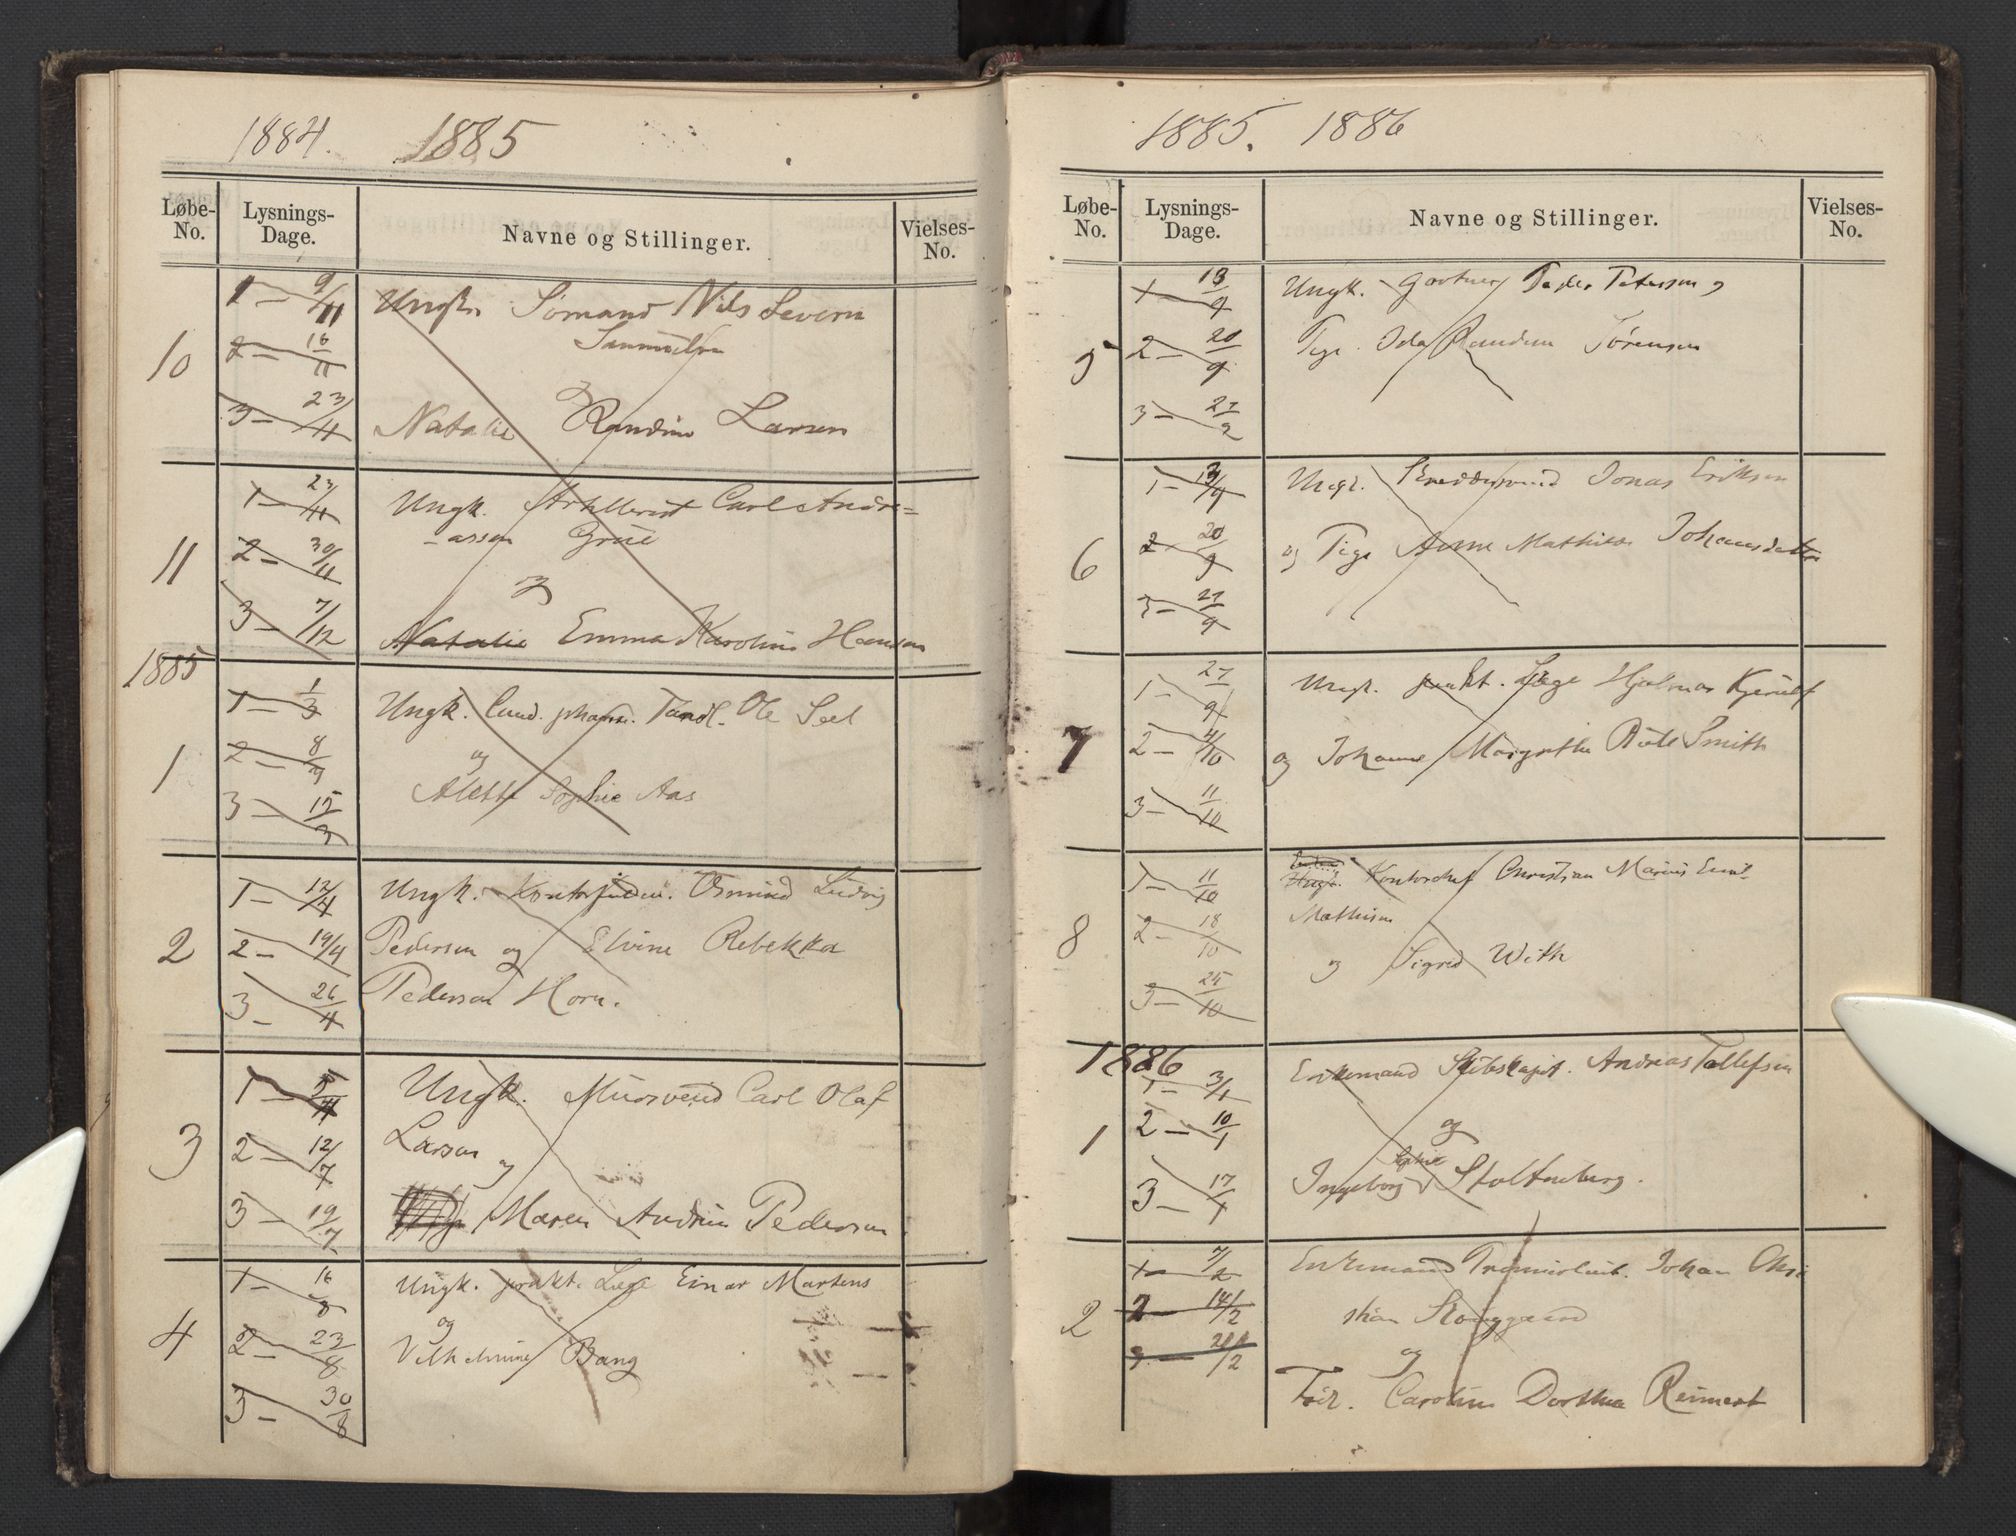 1884. 1885
Løbe-No. Lysnings-Dage. Navne og Stillinger. Vielses-No.
10
1 — 9/11 Ungk. Sømand Nils Severin
2 — 16/11 Samuelsen
og
3 — 23/11 Natalie Randine Larsen
11
1 — 23/11 Ungk. Artillerist Carl Andre=
2 — 30/11 -assen Grüe
og
3 — 7/12 Natalie Emma Karoline Hansen
1885
1
1 — 1/3 Ungk. Cand. pharm. Tandl. Ole Seel
2 — 8/3 og
3 — 15/3 Alette Sophie Aas
2
1 — 12/4 Ungk. Osmund Ludvig
2 — 19/4 Pedersen og Elvine Rebekka
3 — 26/4 Pederson Horn.
3
1 — Ungk. Mursvend Carl Olaf
2 — 12/7 Larsen og
3 — 19/7 Maren Andrine Pedersen
4
1 — 16/8 Ungk. prakt. Læge Einar Martens
2 — 23/8 og
Vilhelmine Bang
3 — 30/8
1885. 1886
Løbe-No. Lysnings-Dage. Navne og Stillinger. Vielses-No.
5
1 — 13/9 Ungk. Gartner Peder Petersen og
2 — 20/9 Pige. Ida Randine Sørensen
3 — 27/9
6
1 — 13/9 Ungk. Skreddersvend Jonas Eriksen
2 — 20/9 og Pige Anne Mathilde Johansdatter
3 — 27/9
7
1 — 27/9 Ungk. prakt. Læge Hjalmar Kjerulf
2 — 4/10 og Johanne Margrethe Smith
3 — 11/10
8
1 — 11/10 Ungk. Kontorchef Christian Marius Emil
2 — 18/10 Mathisen
og Sigrid With
3 — 25/10
1886
1
1 — 3/1 Enkemand Skibskapt. Andreas Tollefsen
2 — 10/1 og
Sophie
3 — 17/1 Ingeborg Stoltenberg.
2
1 — 7/2 Enkemand Johan Chri
2 — 14/2 stian
3 — 21/2 og
Frk. Caroline Dorthea Reimert